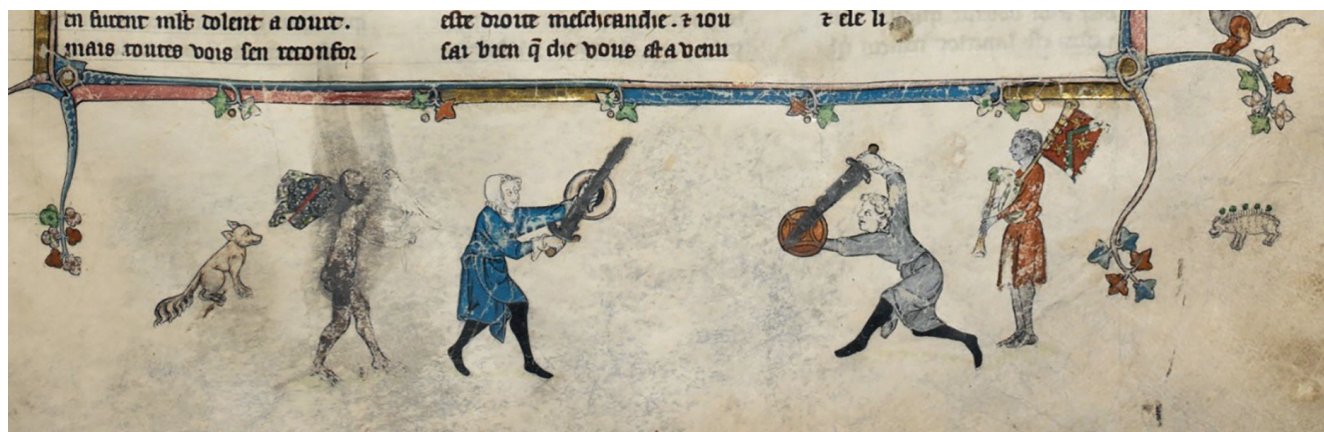 en furent ml̃t dolent a court.
mais toutes vois sen reconfor
este droite mescheanche. ⁊ iou
sai bien q̃ che vous est a venu
⁊ ele li